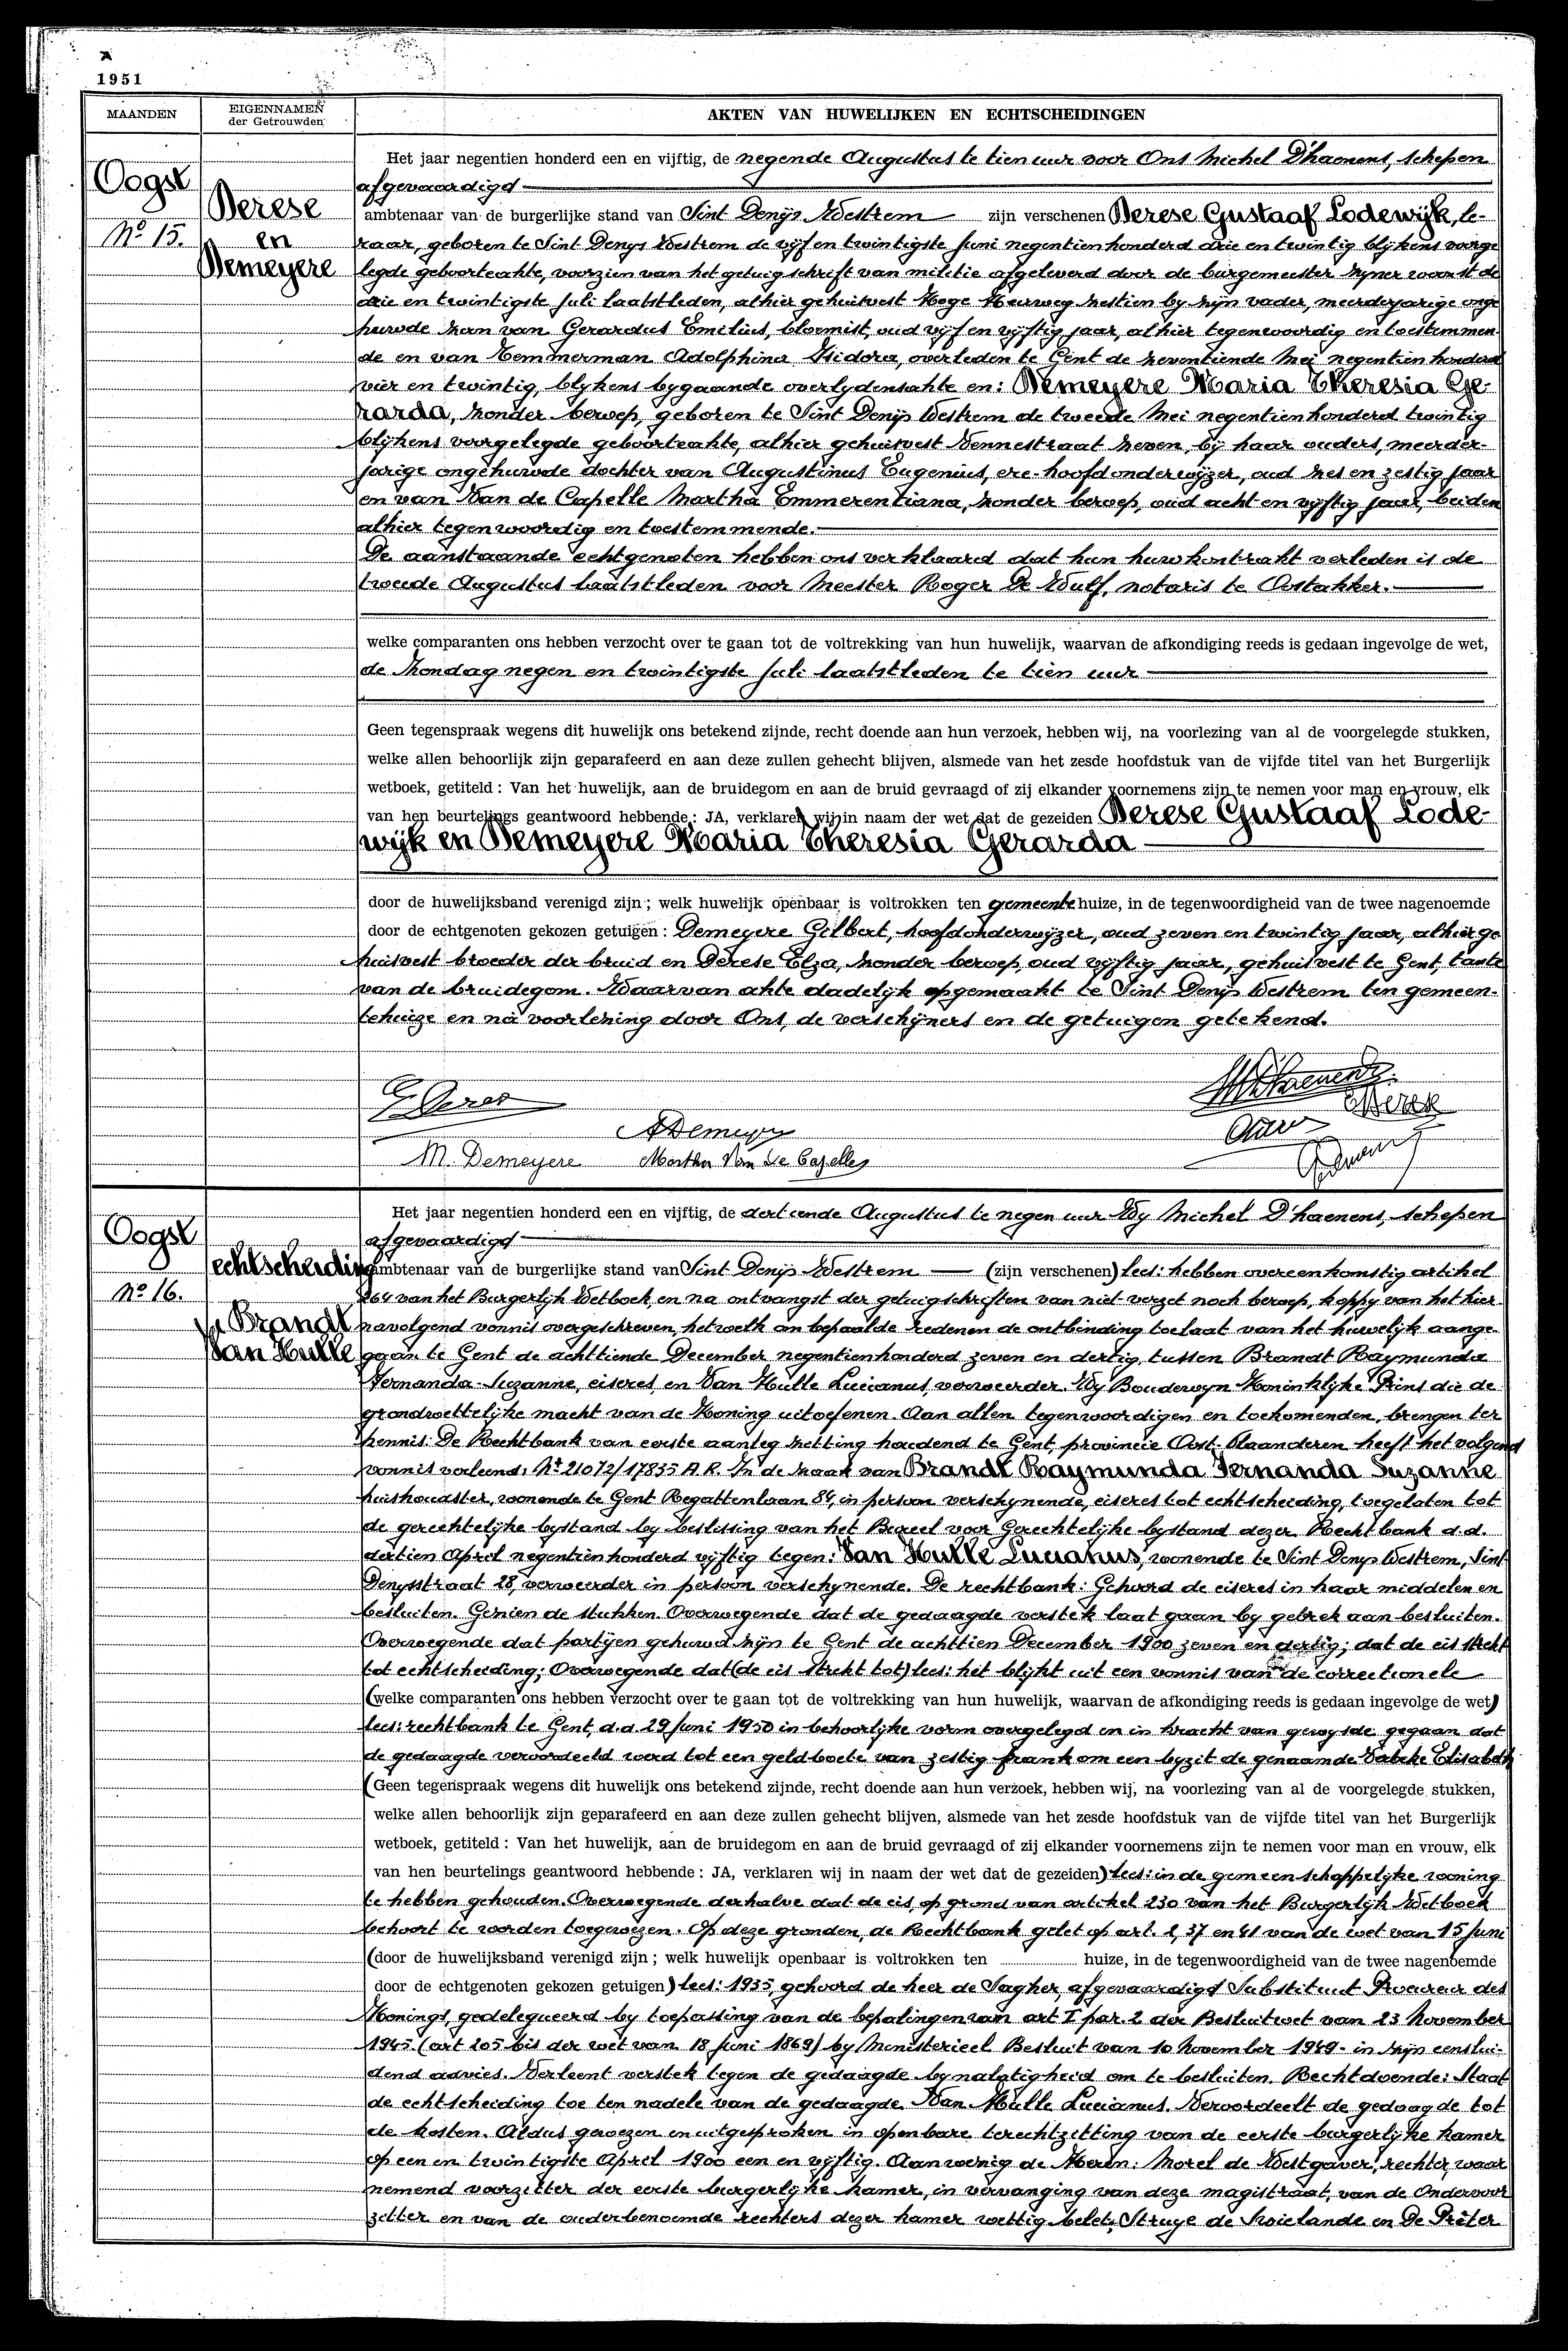 1951
MAANDEN
EIGENNAMEN
der Getrouwden
AKTEN VAN HUWELIJKEN EN ECHTSCHEIDINGEN
Oogst
Nº 15.
Derese
en
Demeyere
Het jaar negentien honderd een en vijftig, de negende Augustus te tien uur voor Ons Michel D'haenens, schepen
afgevaardigd
ambtenaar van de burgerlijke stand van Sint Denijs Westrem zijn verschenen Derese Gustaaf Lodewijk, le-
raar, geboren te Sint Denys Westrem de vijf en twintigste Juni negentienhonderd drie en twintig blijkens voorge
legde geboorteakte, voorzien van het getuigschrift van militie afgeleverd door de burgemeester zijner woonst de
drie en twintigste Juli laatstleden, alhier gehuisvest Hoge Heirweg zestien by zijn vader, meerderjarige onge
huwde zoon van Gerardus Emilius, bloemist, oud vijf en vijftig jaar, alhier tegenwoordig en toestemmen-
de en van Temmerman Adolphina Isidora, overleden te Gent de zeventiende Mei negentien honderd
vier en twintig, blijkens bygaande overlydensakte en: Demeyere Maria Theresia Ge-
rarda, zonder beroep, geboren te Sint Denijs Westrem de tweede Mei negentienhonderd twintig
blijkens voorgelegde geboorteakte, alhier gehuisvest Dennestraat zeven, bij haar ouders, meerder-
jarige ongehuwde dochter van Augustinus Eugenius, ere-hoofdonderwijzer, oud zes en zestig jaar
en van Van de Capelle Martha Emmerentiana, zonder beroep, oud acht en vijftig jaar, beiden
alhier tegenwoordig en toestemmende.
De aanstaande echtgenoten hebben ons verklaard dat hun huwkontrakt verleden is de
tweede Augustus laatstleden voor Meester Roger De Wulf, notaris te Oostakker.
welke comparanten ons hebben verzocht over te gaan tot de voltrekking van hun huwelijk, waarvan de afkondiging reeds is gedaan ingevolge de wet,
de Zondag negen en twintigste Juli laatstleden te tien uur
Geen tegenspraak wegens dit huwelijk ons betekend zijnde, recht doende aan hun verzoek, hebben wij, na voorlezing van al de voorgelegde stukken,
welke allen behoorlijk zijn geparafeerd en aan deze zullen gehecht blijven, alsmede van het zesde hoofdstuk van de vijfde titel van het Burgerlijk
wetboek, getiteld : Van het huwelijk, aan de bruidegom en aan de bruid gevraagd of zij elkander voornemens zijn te nemen voor man en vrouw, elk
van hen beurtelings geantwoord hebbende : JA, verklaren wij in naam der wet dat de gezeiden Derese Gustaaf Lode-
wijk en Demeyere Maria Theresia Gerarda
door de huwelijksband verenigd zijn ; welk huwelijk openbaar is voltrokken ten gemeente huize, in de tegenwoordigheid van de twee nagenoemde
door de echtgenoten gekozen getuigen : Demeyere Gilbert, hoofdonderwijzer, oud zeven en twintig jaar, alhier ge
huisvest broeder der bruid en Derese Elza, zonder beroep, oud vijftig jaar, gehuisvest te Gent, tante
van de bruidegom. Waarvan akte dadelijk opgemaakt te Sint Denijs Westrem ten gemeen-
tehuize en na voorlezing door Ons, de verschijners en de getuigen getekend.
M. Demeyere Martha Van De Capelle
Oogst
Nº 16.
echtscheiding
Brandt
Van Hulle
Het jaar negentien honderd een en vijftig, de dertiende Augustus te negen uur Wy Michel D'haenens, schepen
afgevaardigd
ambtenaar van de burgerlijke stand van Sint Denijs Westrem (zijn verschenen) lees: hebben overeenkomstig artikel
264 van het Burgerlijk Wetboek, en na ontvangst der getuigschriften van niet verzet noch beroep, koppy van het hier
navolgend vonnis overgeschreven, hetwelk om bepaalde redenen de ontbinding toelaat van het huwelijk aange-
gaan te Gent de achttiende December negentienhonderd zeven en dertig, tussen Brandt Raymunda
Fernanda-Suzanne, eiseres, en Van Hulle Lucianus, verweerder. Wy Boudewyn Koninklijke Prins die de
grondwettelijke macht van de Koning uitoefenen. Aan allen tegenwoordigen en toekomenden, brengen ter
kennis: De Rechtbank van eerste aanleg zetting houdend te Gent, provincie Oost-Vlaanderen heeft het volgend
vonnis verleend: Nt 21072/17835 A.R. In de zaak van Brandt Raymunda Fernanda Suzanne
huishoudster, wonende te Gent Regattenlaan 84, in persoon verschynende, eiseres tot echtscheiding, toegelaten tot
de gerechtelijke bystand by beslissing van het Bureel voor Gerechtelijke bystand dezer Rechtbank d.d.
dertien April negentienhonderd vijftig tegen: Van Hulle Lucianus, wonende te Sint Denys Westrem, Sint
Denysstraat 28, verweerder in persoon verschynende. De rechtbank: Gehoord de eiseres in haar middelen en
besluiten. Gezien de stukken. Overwegende dat de gedaagde verstek laat gaan by gebrek aan besluiten.
Overwegende dat partijen gehuwd zijn te Gent de achttien December 1900 zeven en dertig; dat de eis strekt
tot echtscheiding; Overwegende dat (de eis strekt tot) lees: het blijkt uit een vonnis van de correctionele
(welke comparanten ons hebben verzocht over te gaan tot de voltrekking van hun huwelijk, waarvan de afkondiging reeds is gedaan ingevolge de wet)
lees: rechtbank te Gent, d.d. 29 Juni 1950 in behoorlijke vorm overgelegd en in kracht van gewysde gegaan dat
de gedaagde veroordeeld werd tot een geldboete van zestig frank om een byzit de genaamde Elisabeth
(Geen tegenspraak wegens dit huwelijk ons betekend zijnde, recht doende aan hun verzoek, hebben wij, na voorlezing van al de voorgelegde stukken,
welke allen behoorlijk zijn geparafeerd en aan deze zullen gehecht blijven, alsmede van het zesde hoofdstuk van de vijfde titel van het Burgerlijk
wetboek, getiteld : Van het huwelijk, aan de bruidegom en aan de bruid gevraagd of zij elkander voornemens zijn te nemen voor man en vrouw, elk
van hen beurtelings geantwoord hebbende : JA, verklaren wij in naam der wet dat de gezeiden) lees: in de gemeenschappelijke woning
te hebben gehouden. Overwegende derhalve dat de eis, op grond van artikel 230 van het Burgerlijk Wetboek
behoort te worden toegewezen. Op deze gronden, de Rechtbank gelet op art. 2, 37 en 41 van de wet van 15 Juni
(door de huwelijksband verenigd zijn ; welk huwelijk openbaar is voltrokken ten huize, in de tegenwoordigheid van de twee nagenoemde
door de echtgenoten gekozen getuigen) lees: 1935, gehoord de heer de Sagher, afgevaardigd Substituut Procureur des
Konings, gedelegueerd by toepassing van de bepalingen van art I par. 2 der Besluitwet van 23 November
1945 (art 205 bis der wet van 18 Juni 1869) by Ministerieel Besluit van 10 November 1949- in zijn eenslui-
dend advies. Verleent verstek tegen de gedaagde by nalatigheid om te besluiten. Rechtdoende: Staat
de echtscheiding toe ten nadele van de gedaagde Van Hulle Lucianus. Veroordeelt de gedaagde tot
de kosten. Aldus gewezen en uitgesproken in openbare terechtzetting van de eerste burgerlijke kamer
op een en twintigste April 1900 een en vijftig. Aanwezig de Heren: Morel de Westgaver, rechter, waar
nemend voorzitter der eerste burgerlyke kamer, in vervanging van deze magistraat, van de Ondervoor
zitter en van de ouderbenoemde rechters dezer kamer wettig belet; Struye de Swielande en De Prêter